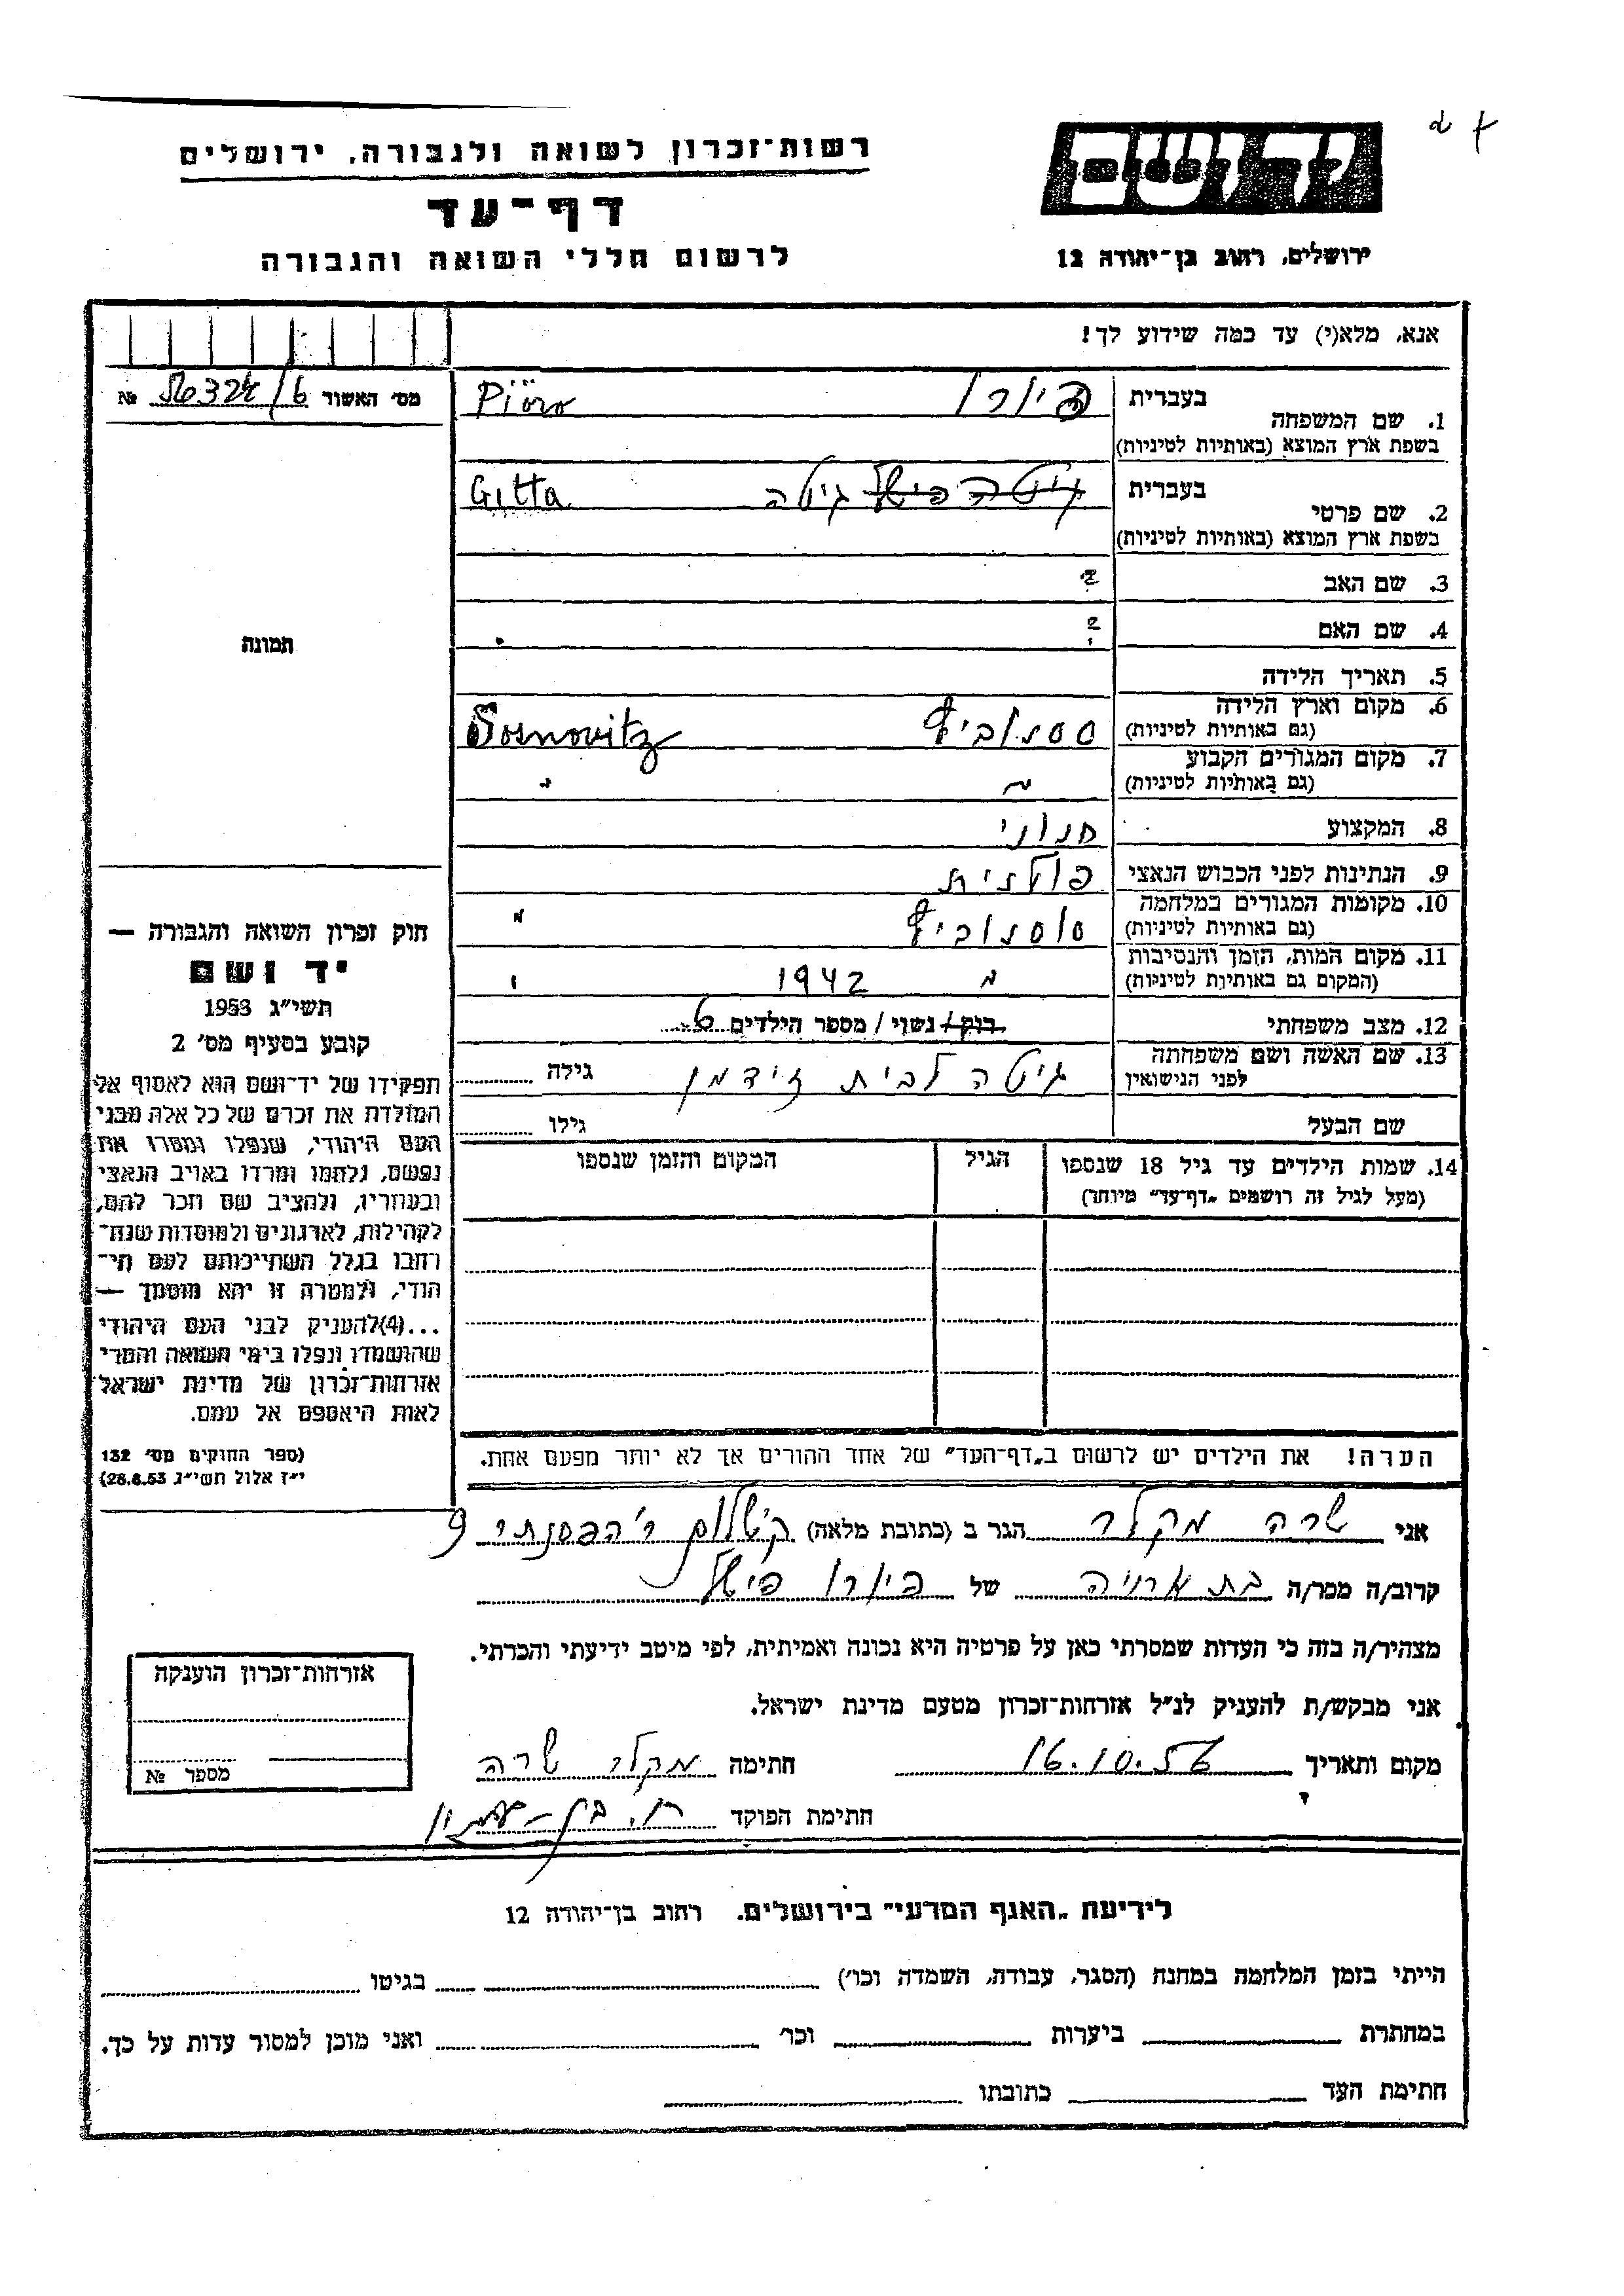 רשות-זכרון לשואה ולגבורה, ירושלים
דף-עד
לרשום חללי השואה והגבורה
ידושם
ירושלים, רחוב בן-יהודה 12
אנא, מלא(י) עד כמה שידוע לך!
מס' האשור №
1. שם המשפחה בעברית פיורו Pióro
בשפת ארץ המוצא (באותיות לטיניות)
2. שם פרטי בעברית גיטה פישל גיטלה Gitta
בשפת ארץ המוצא (באותיות לטיניות)
3. שם האב ?
4. שם האם ?
5. תאריך הלידה
6. מקום וארץ הלידה סוסנוביץ Sosnovitz
(גם באותיות לטיניות)
7. מקום המגורים הקבוע " "
(גם באותיות לטיניות)
8. המקצוע חנוני
9. הנתינות לפני הכבוש הנאצי פולנית
10. מקומות המגורים במלחמה סוסנוביץ "
(גם באותיות לטיניות)
11. מקום המות, הזמן והנסיבות " 1942 "
(המקום גם באותיות לטיניות)
12. מצב משפחתי רוק/ נשוי / מספר הילדים 6
13. שם האשה ושם משפחתה לפני הנישואין גיטה לבית זידמן גילה
שם הבעל גילו
14. שמות הילדים עד גיל 18 שנספו הגיל המקום והזמן שנספו
(מעל לגיל זה רושמים "דף-עד" מיוחד)
הערה! את הילדים יש לרשום ב"דף-העד" של אחד ההורים אך לא יותר מפעם אחת.
תמונה
חוק זכרון השואה והגבורה —
יד ושם
תשי"ג 1953
קובע בסעיף מס' 2
תפקידו של יד-ושם הוא לאסוף אל
המולדת את זכרם של כל אלה מבני
העם היהודי, שנפלו ומסרו את
נפשם, נלחמו ומרדו באויב הנאצי
ובעוזריו, ולהציב שם וזכר להם,
לקהילות, לארגונים ולמוסדות שנח-
רבו בגלל השתייכותם לעם הי-
הודי, ולמטרה זו יהא מוסמך —
...(4)להעניק לבני העם היהודי
שהושמדו ונפלו בימי השואה והמרי
אזרחות-זכרון של מדינת ישראל
לאות היאספם אל עמם.
(ספר החוקים מס' 132
י"ז אלול תשי"ג 28.8.53)
אני שרה מקלר הגר ב (כתובת מלאה) ק' שלום 9
קרוב/ה מכר/ה בת אחיה של פיורו פישל
מצהיר/ה בזה כי העדות שמסרתי כאן על פרטיה היא נכונה ואמיתית, לפי מיטב ידיעתי והכרתי.
אני מבקש/ת להעניק לנ"ל אזרחות-זכרון מטעם מדינת ישראל.
מקום ותאריך 16.10.56 חתימה מקלר שרה
חתימת הפוקד
אזרחות-זכרון הוענקה
מספר №
לידיעת "האגף המדעי" בירושלים, רחוב בן-יהודה 12
הייתי בזמן המלחמה במחנה (הסגר, עבודה, השמדה וכו') בגיטו
במחתרת ביערות וכו' ואני מוכן למסור עדות על כך.
חתימת העד כתובתו